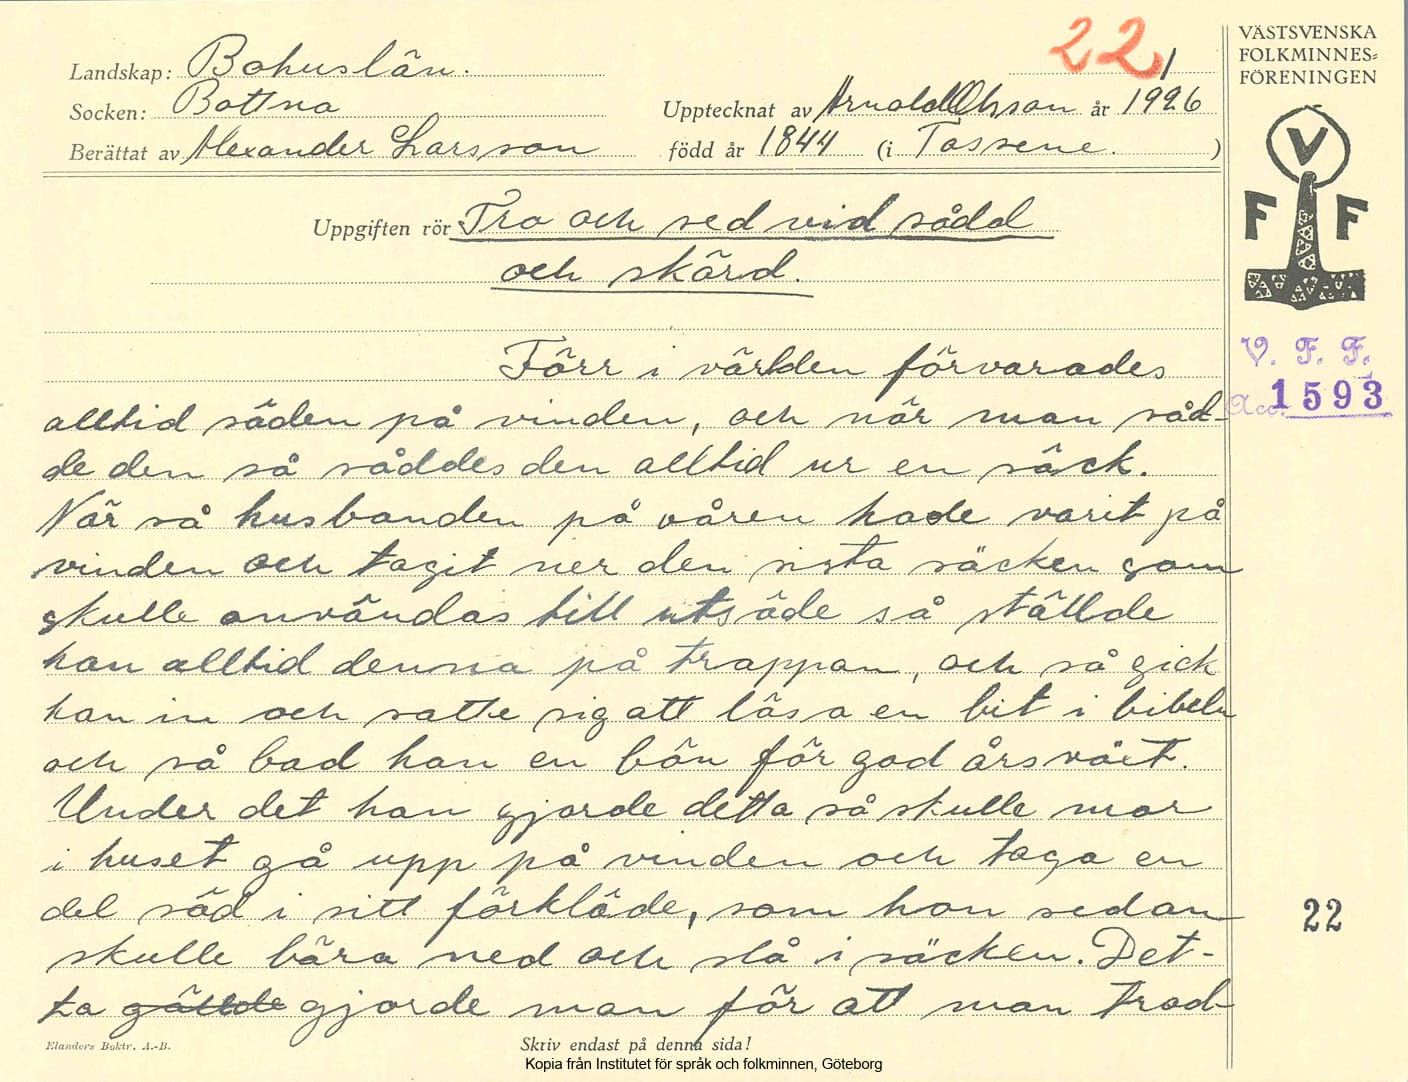 22
1
VÄSTSVENSKA
FOLKMINNES=
FÖRENINGEN
Landskap: Bohuslän.
Socken: Bottna
Upptecknat av Arnold Olsson år 1926
Berättat av Alexander Larsson född år 1844 (i Tossene.)
V
F F
Uppgiften rör Tro och sed vid sådd
och skörd.
V. F. F.
Acc. 1593
Förr i världen förvarades
alltid säden på vinden, och när man såd-
de den så såddes den alltid ur en säck.
När så husbonden på våren hade varit på
vinden och tagit ner den sista säcken som
skulle användas till utsäde så ställde
han alltid denna på trappan, och så gick
han in och satte sig att läsa en bit i bibeln
och så bad han en bön för god årsväxt.
Under det han gjorde detta så skulle mor
i huset gå upp på vinden och taga en
del säd i sitt förkläde, som hon sedan
skulle bära ned och slå i säcken. Det-
ta gällde gjorde man för att man trod-
22
Elanders Boktr. A.-B.
Skriv endast på denna sida!
Kopia från Institutet för språk och folkminnen, Göteborg